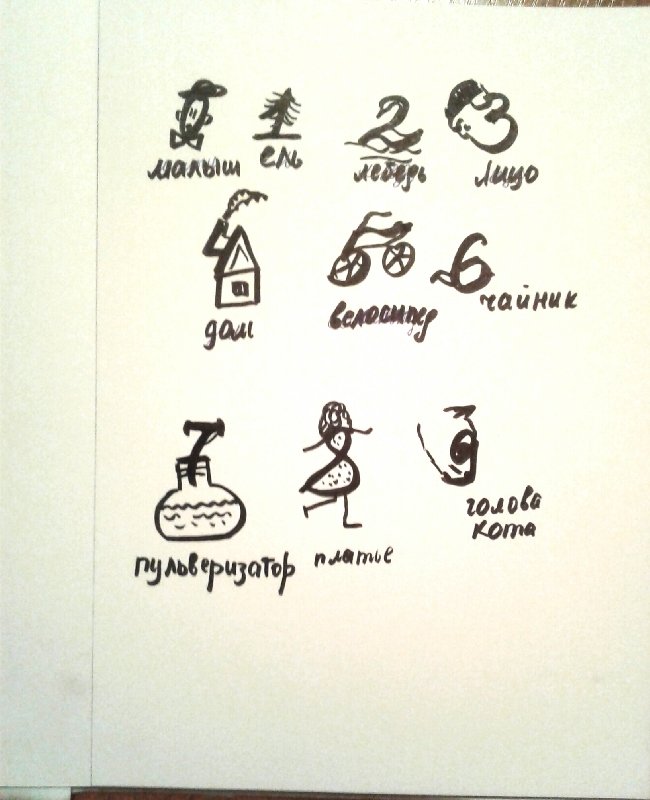 малыш ель лебедь лицо
дом велосипед чайник
7
пульверизатор платье голова
кота